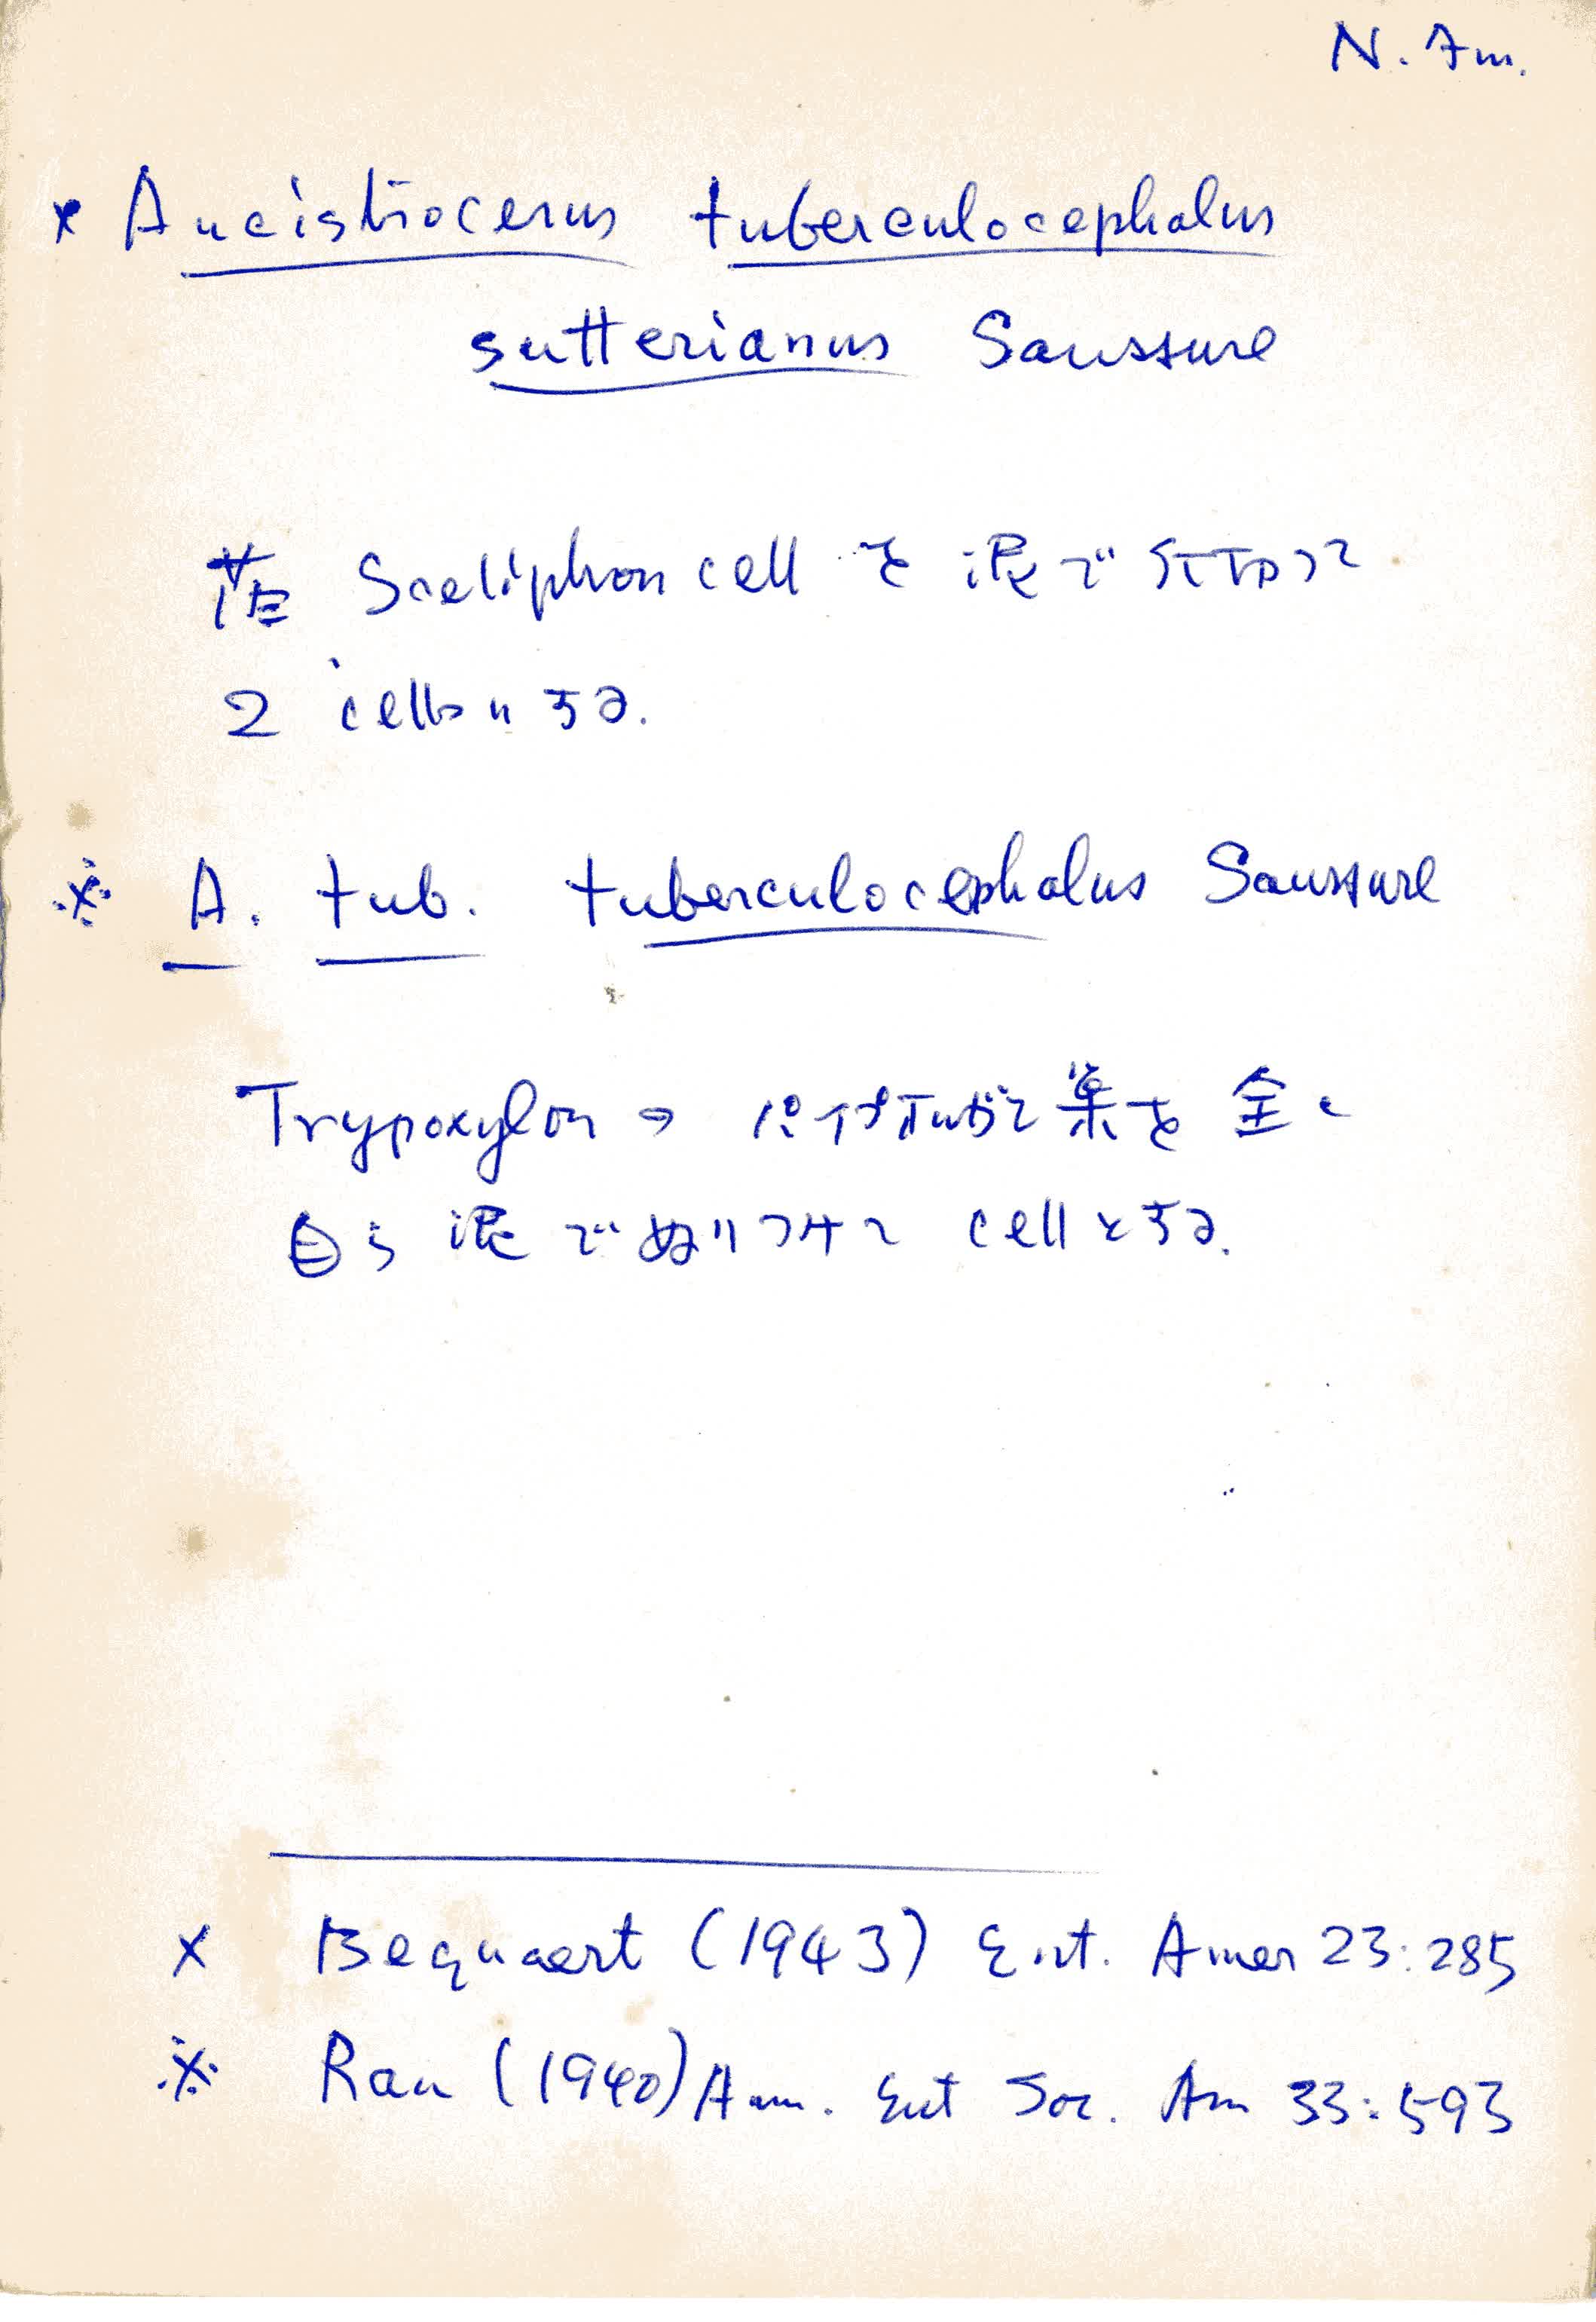 N. Am.
× Ancistrocerus tuberculocephalus
sutterianus Saussure
Sceliphon cell を 泥で 仕切って
2 cells にする.
※ A. tub. tuberculocephalus Saussure
Trypoxylon の パイプオルガン 巣を 全く
自ら 泥で ぬりつけて cell とする.
× Bequaert (1943) Ent. Amer 23:285
※ Rau (1940) Ann. Ent Soc. Am 33:593